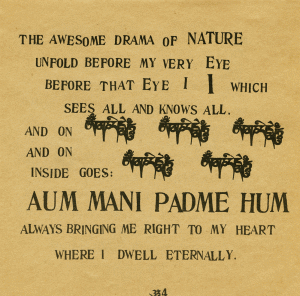 THE AWESOME DRAMA OF NATURE
UNFOLD BEFORE MY VERY EYE
BEFORE THAT EYE I I WHICH
SEES ALL AND KNOWS ALL.
AND ON
AND ON
INSIDE GOES:
AUM MANI PADME HUM
ALWAYS BRINGING ME RIGHT TO MY HEART
WHERE I DWELL ETERNALLY.
34